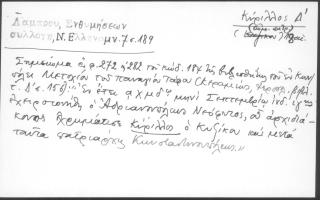 Λάμπρου, Ἐνθυμήσεων
συλλογή, Ν. Ἑλληνομν. 7 σ. 189
Κύριλλος Δ΄
Σημείωμα ἐν φ. 272 ἢ 282 τοῦ κώδ. 187 τῆς βιβλιοθήκης τοῦ ἐν Κων/
πόλει Μετοχίου τοῦ παναγίου Τάφου (Κεραμέως, Ἱεροσ. βιβλ.
τ. Δ΄ σ. 156) "ἐν ἔτει αχμδῳ μηνὶ Σεπτεμβρίῳ ἰνδ.
ἐχειροτονήθη ὁ Ἀδριανουπόλεως Νεόφυτος, οὗ ἀρχιδιά-
κονος ἐχρημάτισε Κύριλλος ὁ Κυζίκου καὶ μετὰ
ταῦτα πατριάρχης Κωνσταντινουπόλεως"